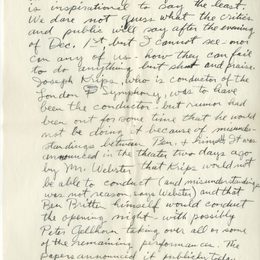 is inspirational to say the least.
We dare not guess what the critics
and public will say after the evening
of Dec. 1st, but I cannot see - nor
can any of us - how they can fail
to do anything but shout and praise.
Joseph Krips, who is conductor of the
London Symphony, was to have
been the conductor - but rumor had
been out for some time that he would
not be doing it because of misunder-
standings between Ben. & him. It was
announced in the theater two days ago
by Mr. Webster that Krips would not
be able to conduct (and misunderstandings
was not reason, says Webster) and that
Ben Britten himself would conduct
the opening night - with possibly
Peter Gellhorn taking over all or some
of the remaining performances. The
Papers announced it publicly today